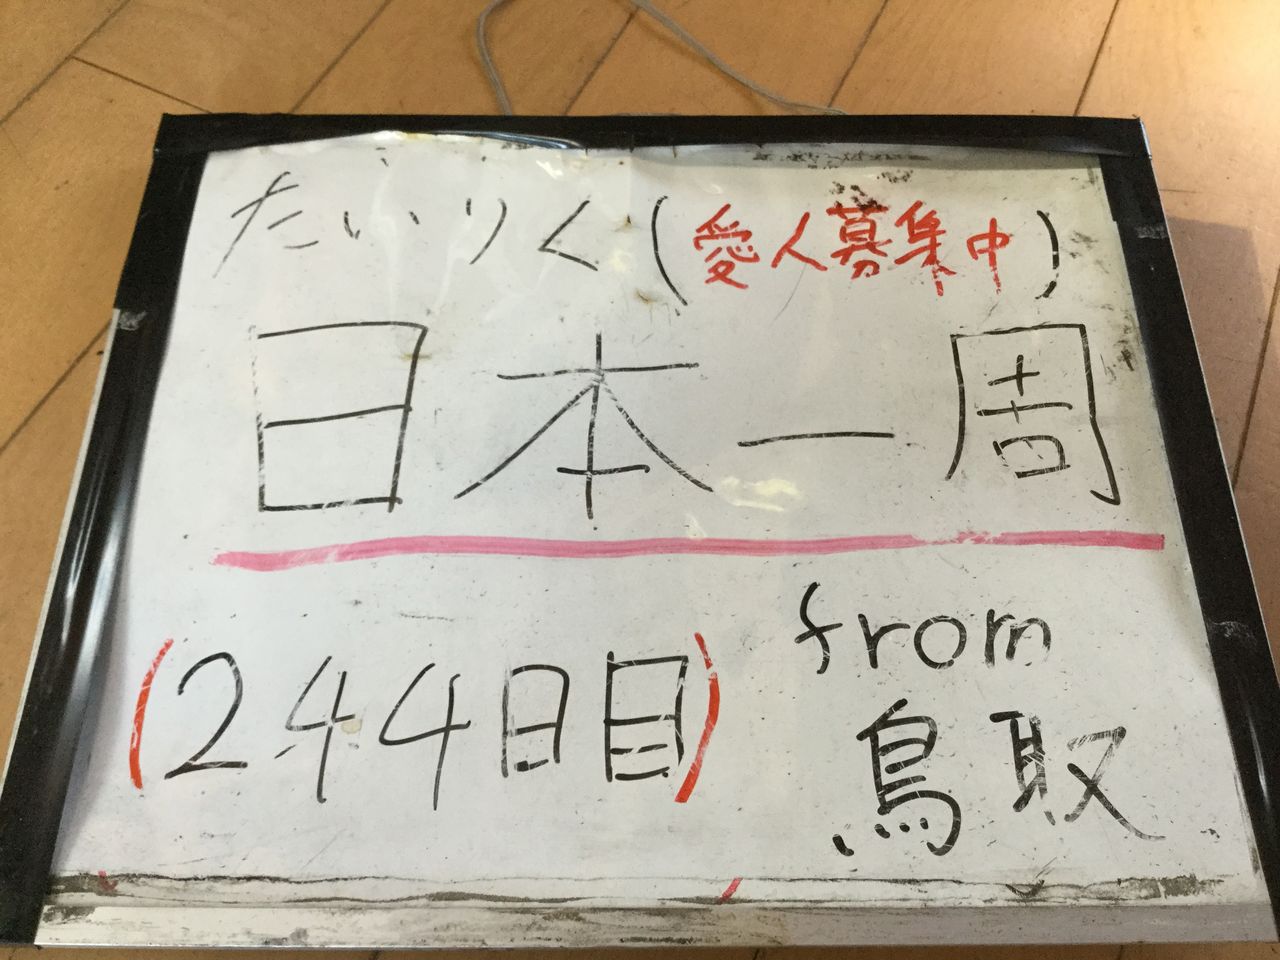 たいりく(愛人募集中)
日本一周
(244日目)
from
鳥取